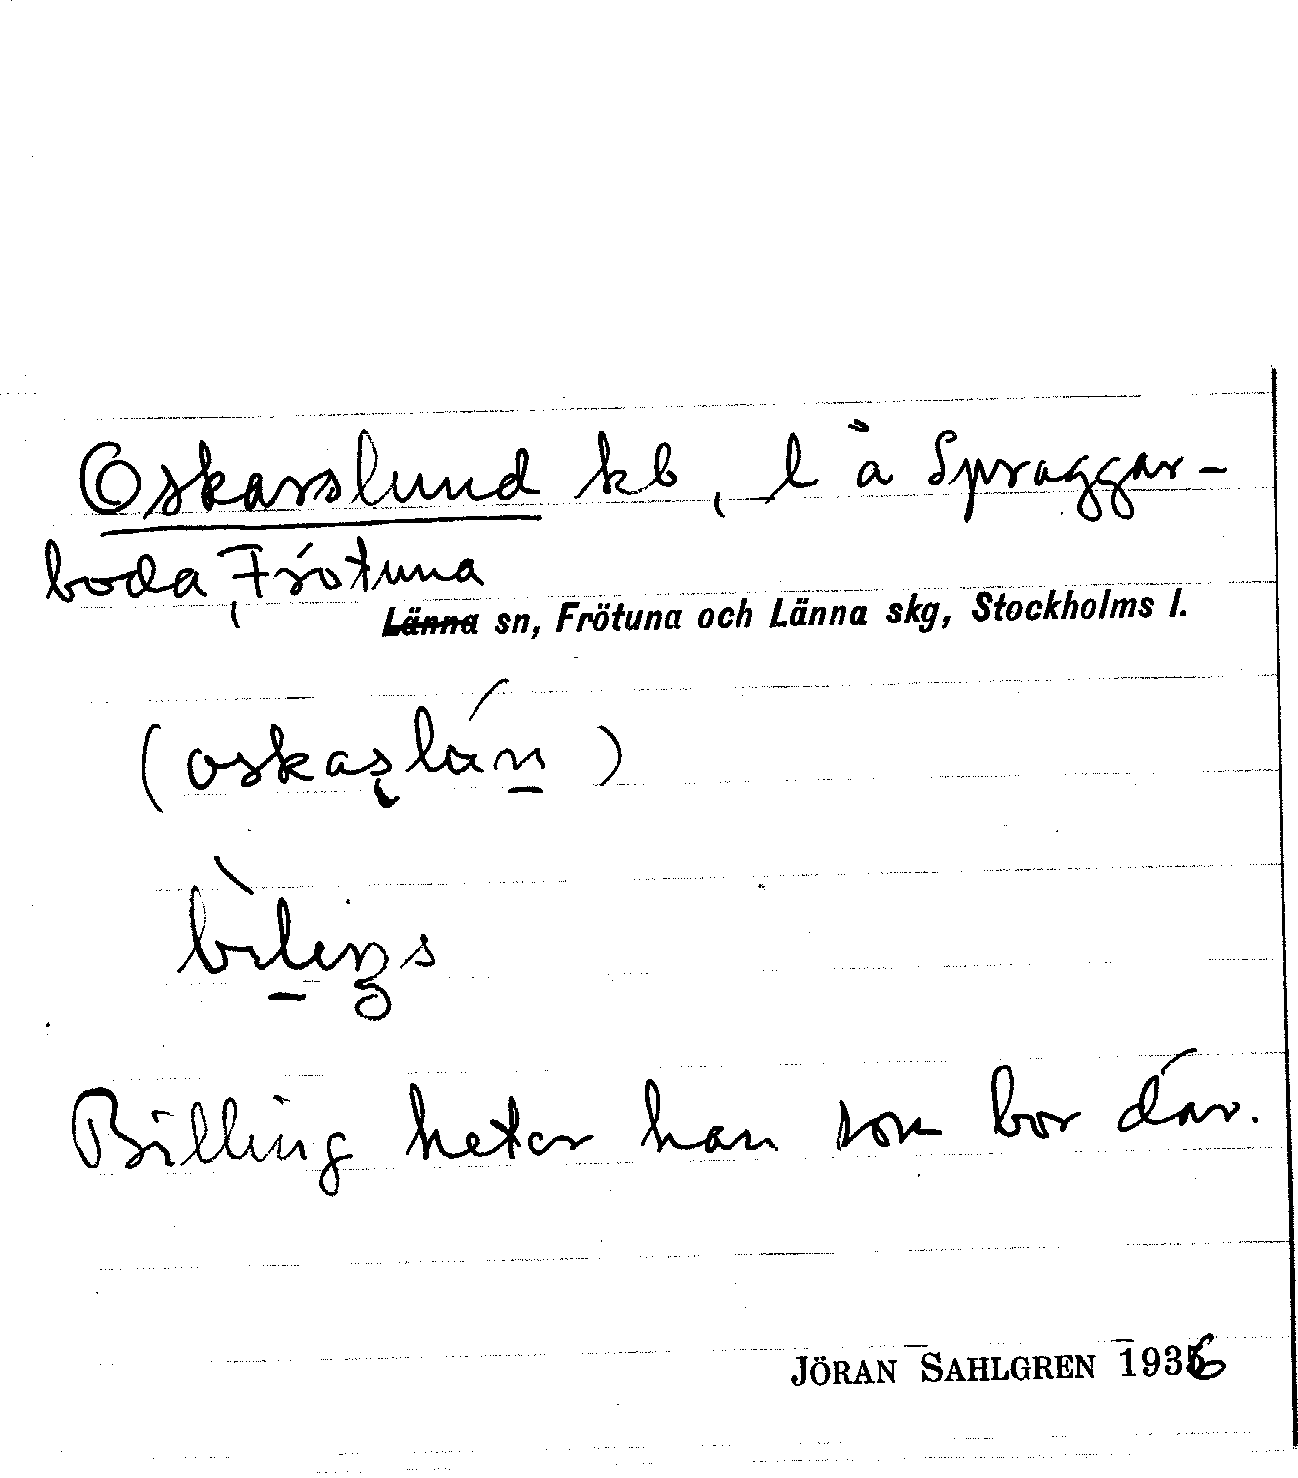 Oskarslund kb, l å Spraggar-
boda, Frötuna
Länna sn, Frötuna och Länna skg, Stockholms l.
(oskaşlún)
bìliŋs
Billing heter han som bor där.
JÖRAN SAHLGREN 1936